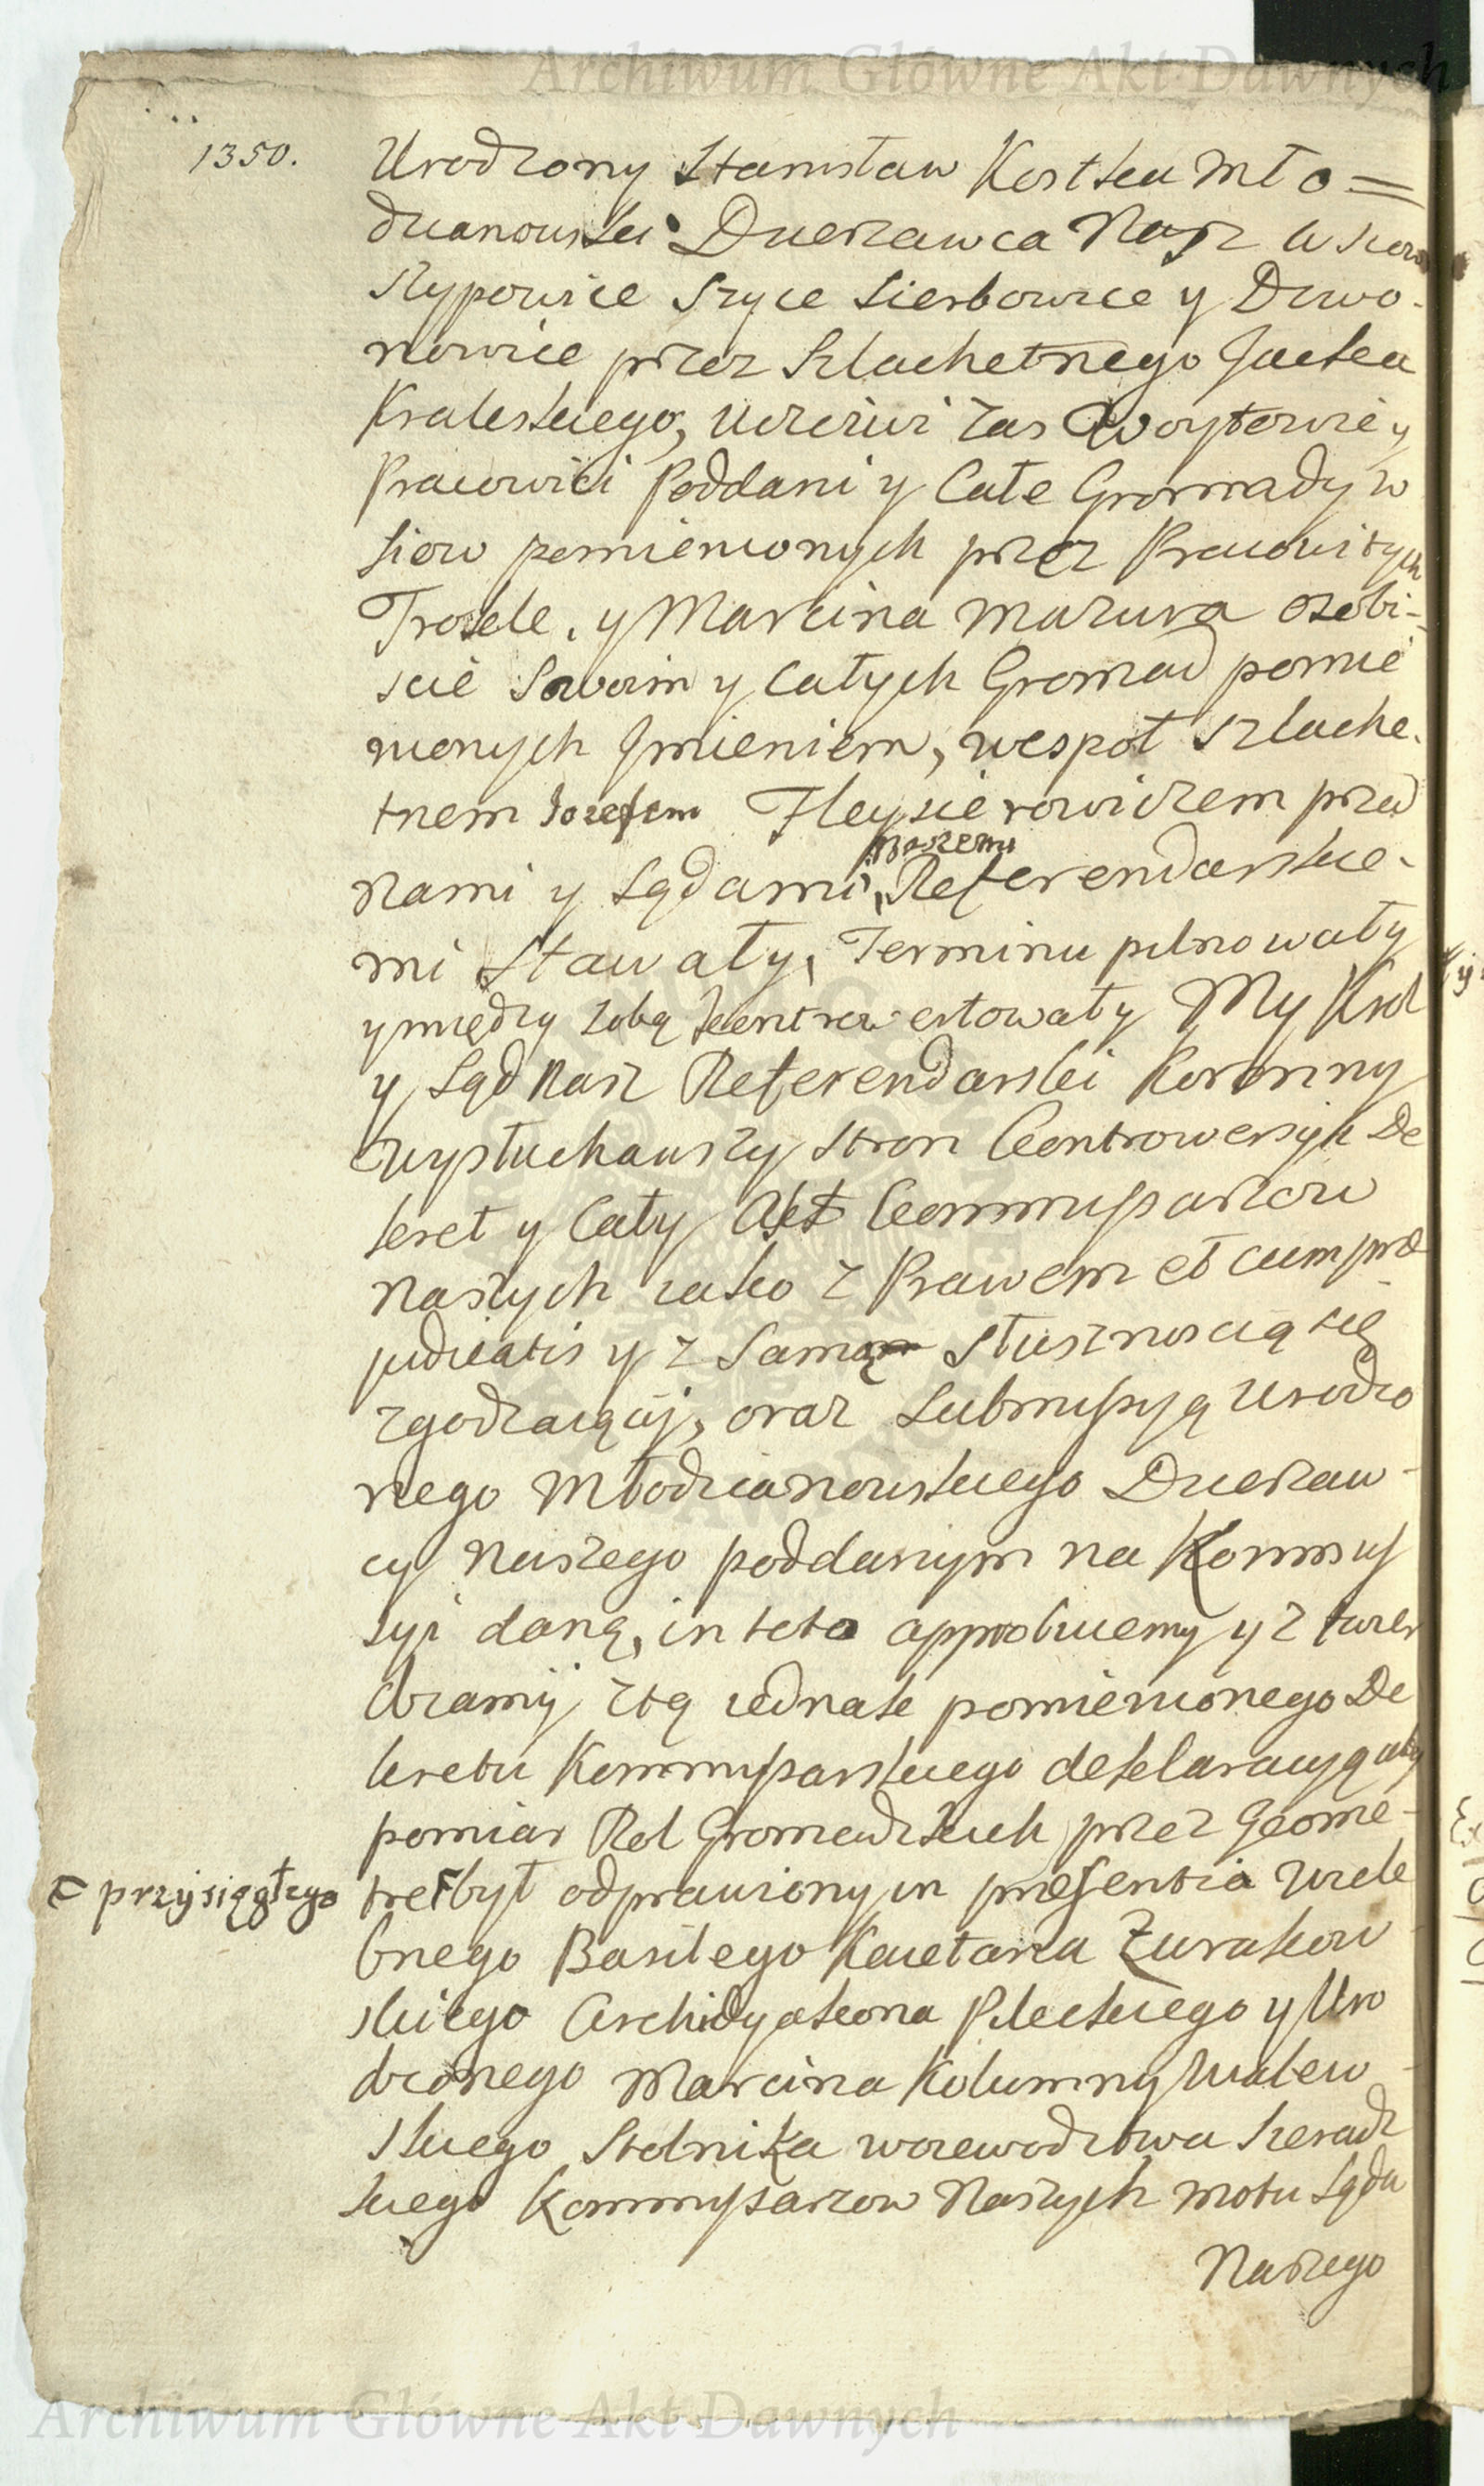 Archiwum Główne Akt Dawnych
1350.
Urodzony Stanisław Kostka Mło=
dzianowski Dzierzawca Nasz wsiow
Szypowice Szyce Sierbowice y Dzwo-
nowice przez Szlachetnego Jacka
Kraleskiego, uczciwi zas Woytowie y
Pracowici Poddani y Całe Gromady w
siow pomienionych przez Pracowitych
Troske, y Marcina Mazura osobi-
scie Swoim y całych Gromad pomie
nionych Jmieniem, wespoł Szlache-
tnem Jozefem Fleysierowiczem przed
Naszemi
Nami y Sądami, Referendarskie-
mi Stawały, Terminu pilnowały
y między sobą kontrowertowały My Krol
y Sąd Nasz Referendarski Koronny
wysłuchawszy stron Controwersyi De
kret y Cały Akt Commissarzow
Naszych iako z Prawem et cum præ
judicatis y z Samą Słusznoscią się
zgodzaiącij, oraz Submissyą Urodzo
nego Młodzianowskiego Dzierzaw-
cy Naszego poddanym na Kommis
syi daną, in toto approbuiemy y z twier
dzamij z tą iednak pomienionego De
kretu Kommissarskiego deklaracyą aby
pomiar Rol Gromadzkich przez Geome-
F przysięgłego
tre F był odprawiony in præsentia Wiele
bnego Basilego Kaietana Zurakow-
skiego Archidyakona Pileckiego y Uro
dzonego Marcina Kolumny Walew-
skiego Stolnika woiewodztwa Sieradz
kiego Kommissarzow Naszych motu Sądu
Naszego
Archiwum Główne Akt Dawnych